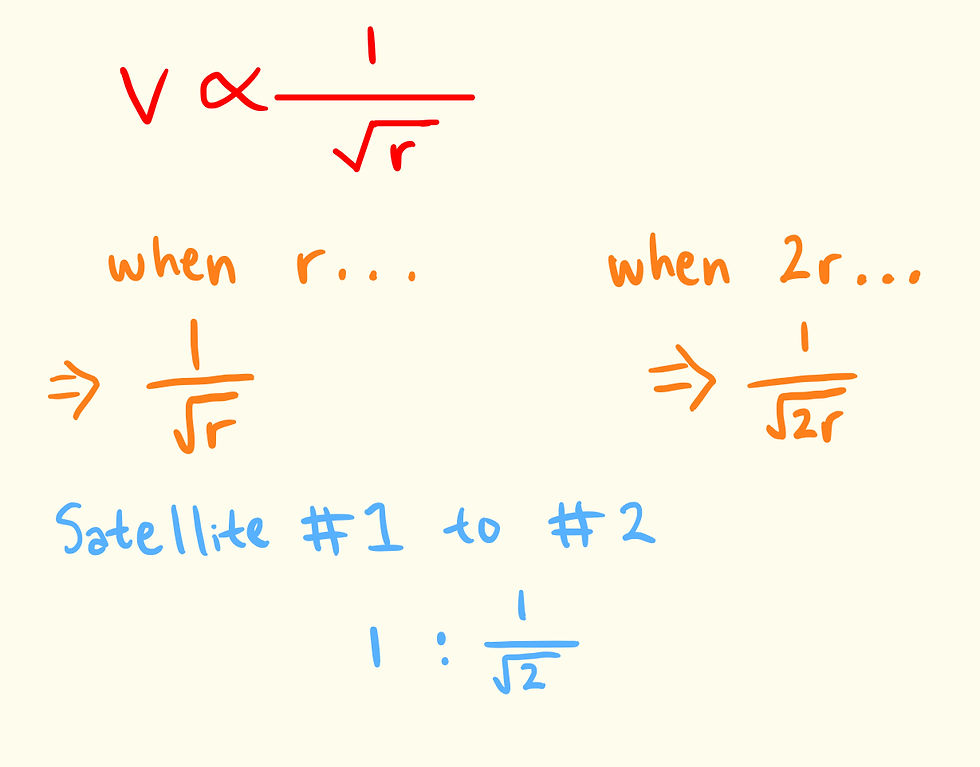 V ∝ 1/√r
when r... when 2r...
⇒ 1/√r ⇒ 1/√2r
Satellite #1 to #2
1 : 1/√2